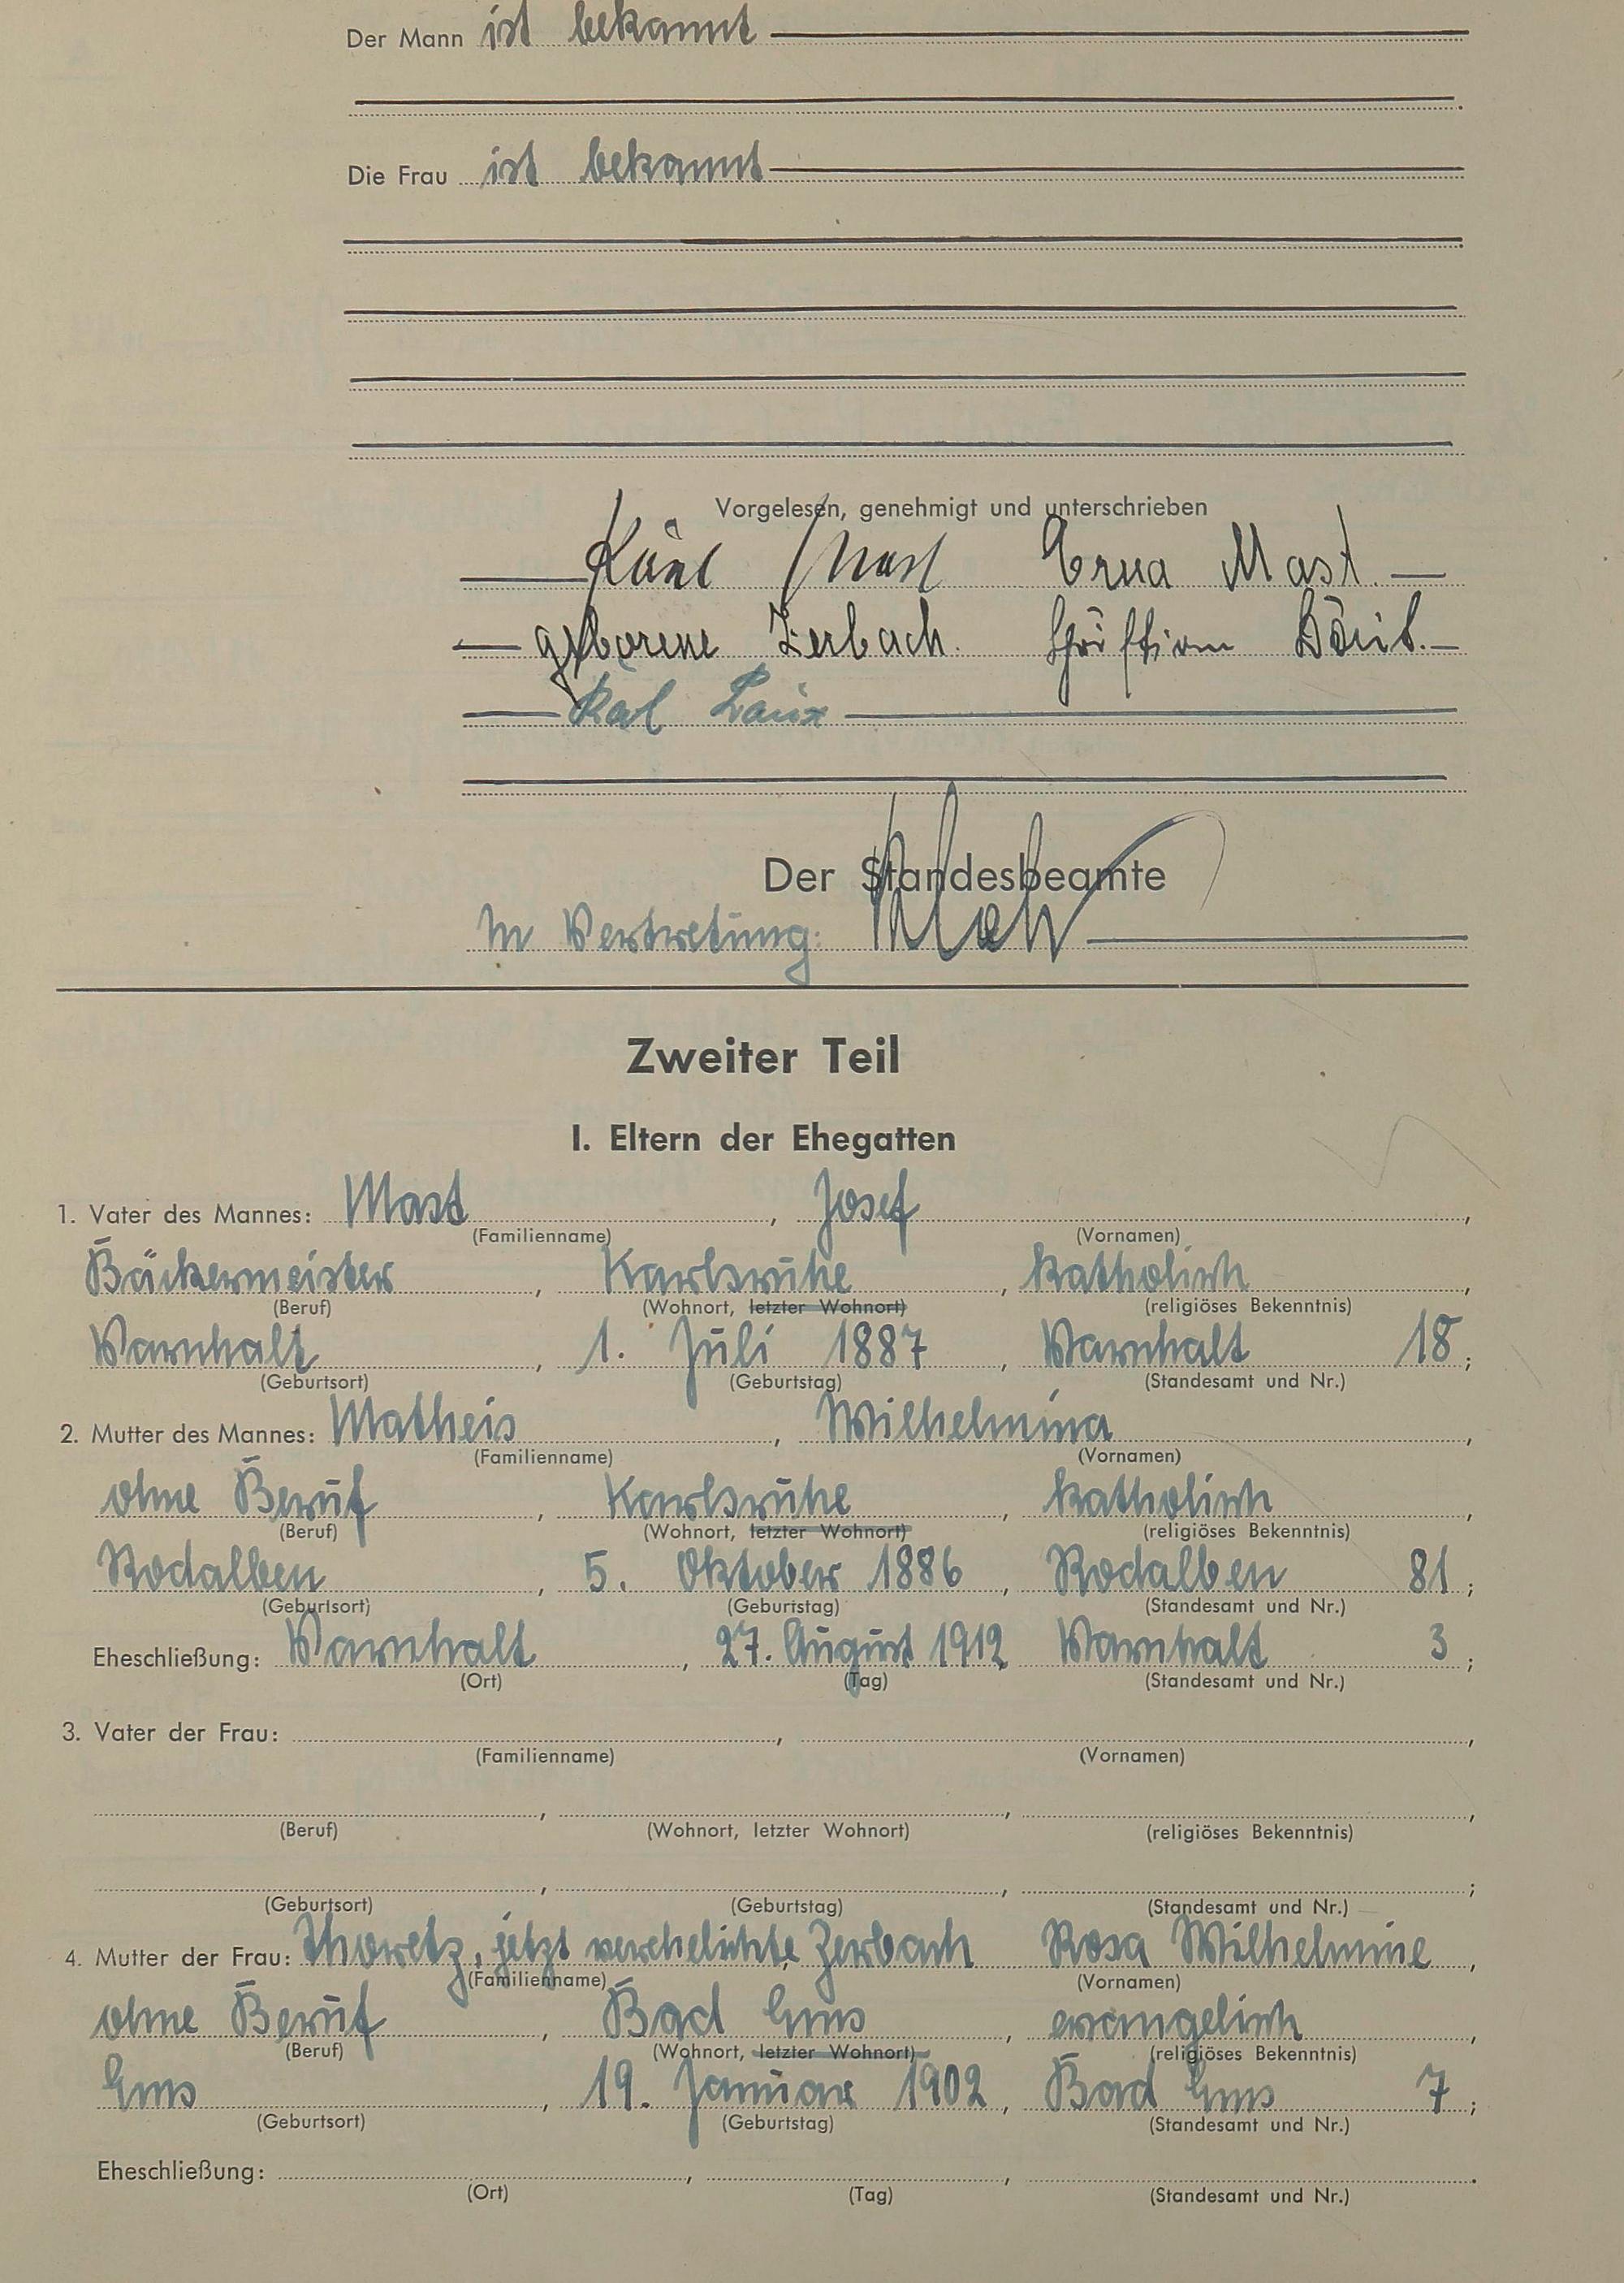 Der Mann ist bekannt
Die Frau ist bekannt
Vorgelesen, genehmigt und unterschrieben
Karl Mast Erna Mast.
geborene Zerbach.
Karl Laux
Der Standesbeamte
In Vertretung:
Zweiter Teil
I. Eltern der Ehegatten
1. Vater des Mannes: Mast, Josef,
(Familienname) (Vornamen)
Bäckermeister, Karlsruhe, katholisch,
(Beruf) (Wohnort, letzter Wohnort) (religiöses Bekenntnis)
Varnhalt, 1. Juli 1887, Varnhalt 18;
(Geburtsort) (Geburtstag) (Standesamt und Nr.)
2. Mutter des Mannes: Matheis, Wilhelmina,
(Familienname) (Vornamen)
ohne Beruf, Karlsruhe, katholisch,
(Beruf) (Wohnort, letzter Wohnort) (religiöses Bekenntnis)
Rodalben, 5. Oktober 1886, Rodalben 81;
(Geburtsort) (Geburtstag) (Standesamt und Nr.)
Eheschließung: Varnhalt, 27. August 1912, Varnhalt 3;
(Ort) (Tag) (Standesamt und Nr.)
3. Vater der Frau: , ,
(Familienname) (Vornamen)
, , ,
(Beruf) (Wohnort, letzter Wohnort) (religiöses Bekenntnis)
, , ;
(Geburtsort) (Geburtstag) (Standesamt und Nr.)
4. Mutter der Frau: Thoretz, jetzt verehelichte Zerbach Rosa Wilhelmine,
(Familienname) (Vornamen)
ohne Beruf, Bad Ems, evangelisch,
(Beruf) (Wohnort, letzter Wohnort) (religiöses Bekenntnis)
Ems, 19. Januar 1902, Bad Ems 7;
(Geburtsort) (Geburtstag) (Standesamt und Nr.)
Eheschließung: , , .
(Ort) (Tag) (Standesamt und Nr.)